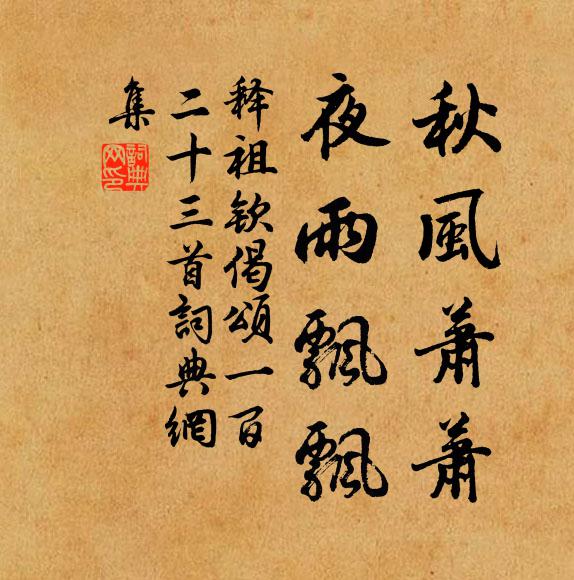 秋風萧萧
夜雨飄飄
释祖欽偈頌一百
二十三首詞典網
集
詞典網印